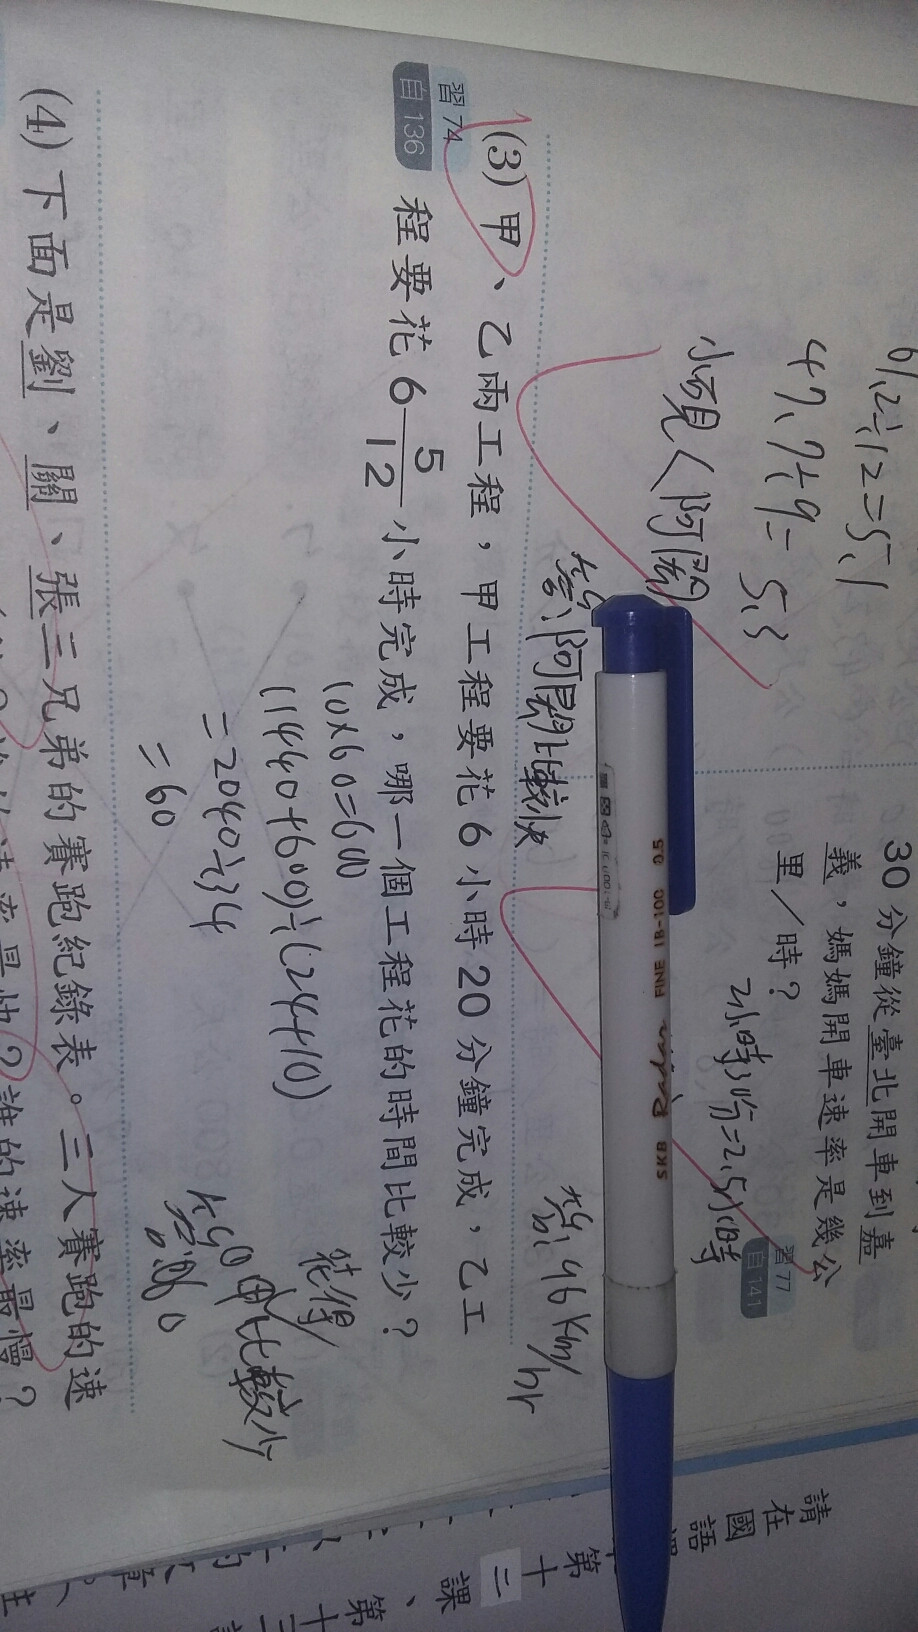 61.2÷12=5.1
47.7÷9=5.3
小現<阿鬧
答:阿鬧比較快
30分鐘從臺北開車到嘉
義，媽媽開車速率是幾公
里／時？
習77
自141
2小時30分=2.5小時
答:46km/hr
SKB FINE IB-100 0.5
(3)甲、乙兩工程，甲工程要花6小時20分鐘完成，乙工
習74
自136
程要花6 5/12 小時完成，哪一個工程花的時間比較少？
10×60=600
(1440+600)÷(24+10)
=2040÷34
=60
花得
甲比較少
答:60
(4)下面是劉、關、張三兄弟的賽跑紀錄表。三人賽跑的速
誰的速率最慢？
請在國語
第十三課、第十三